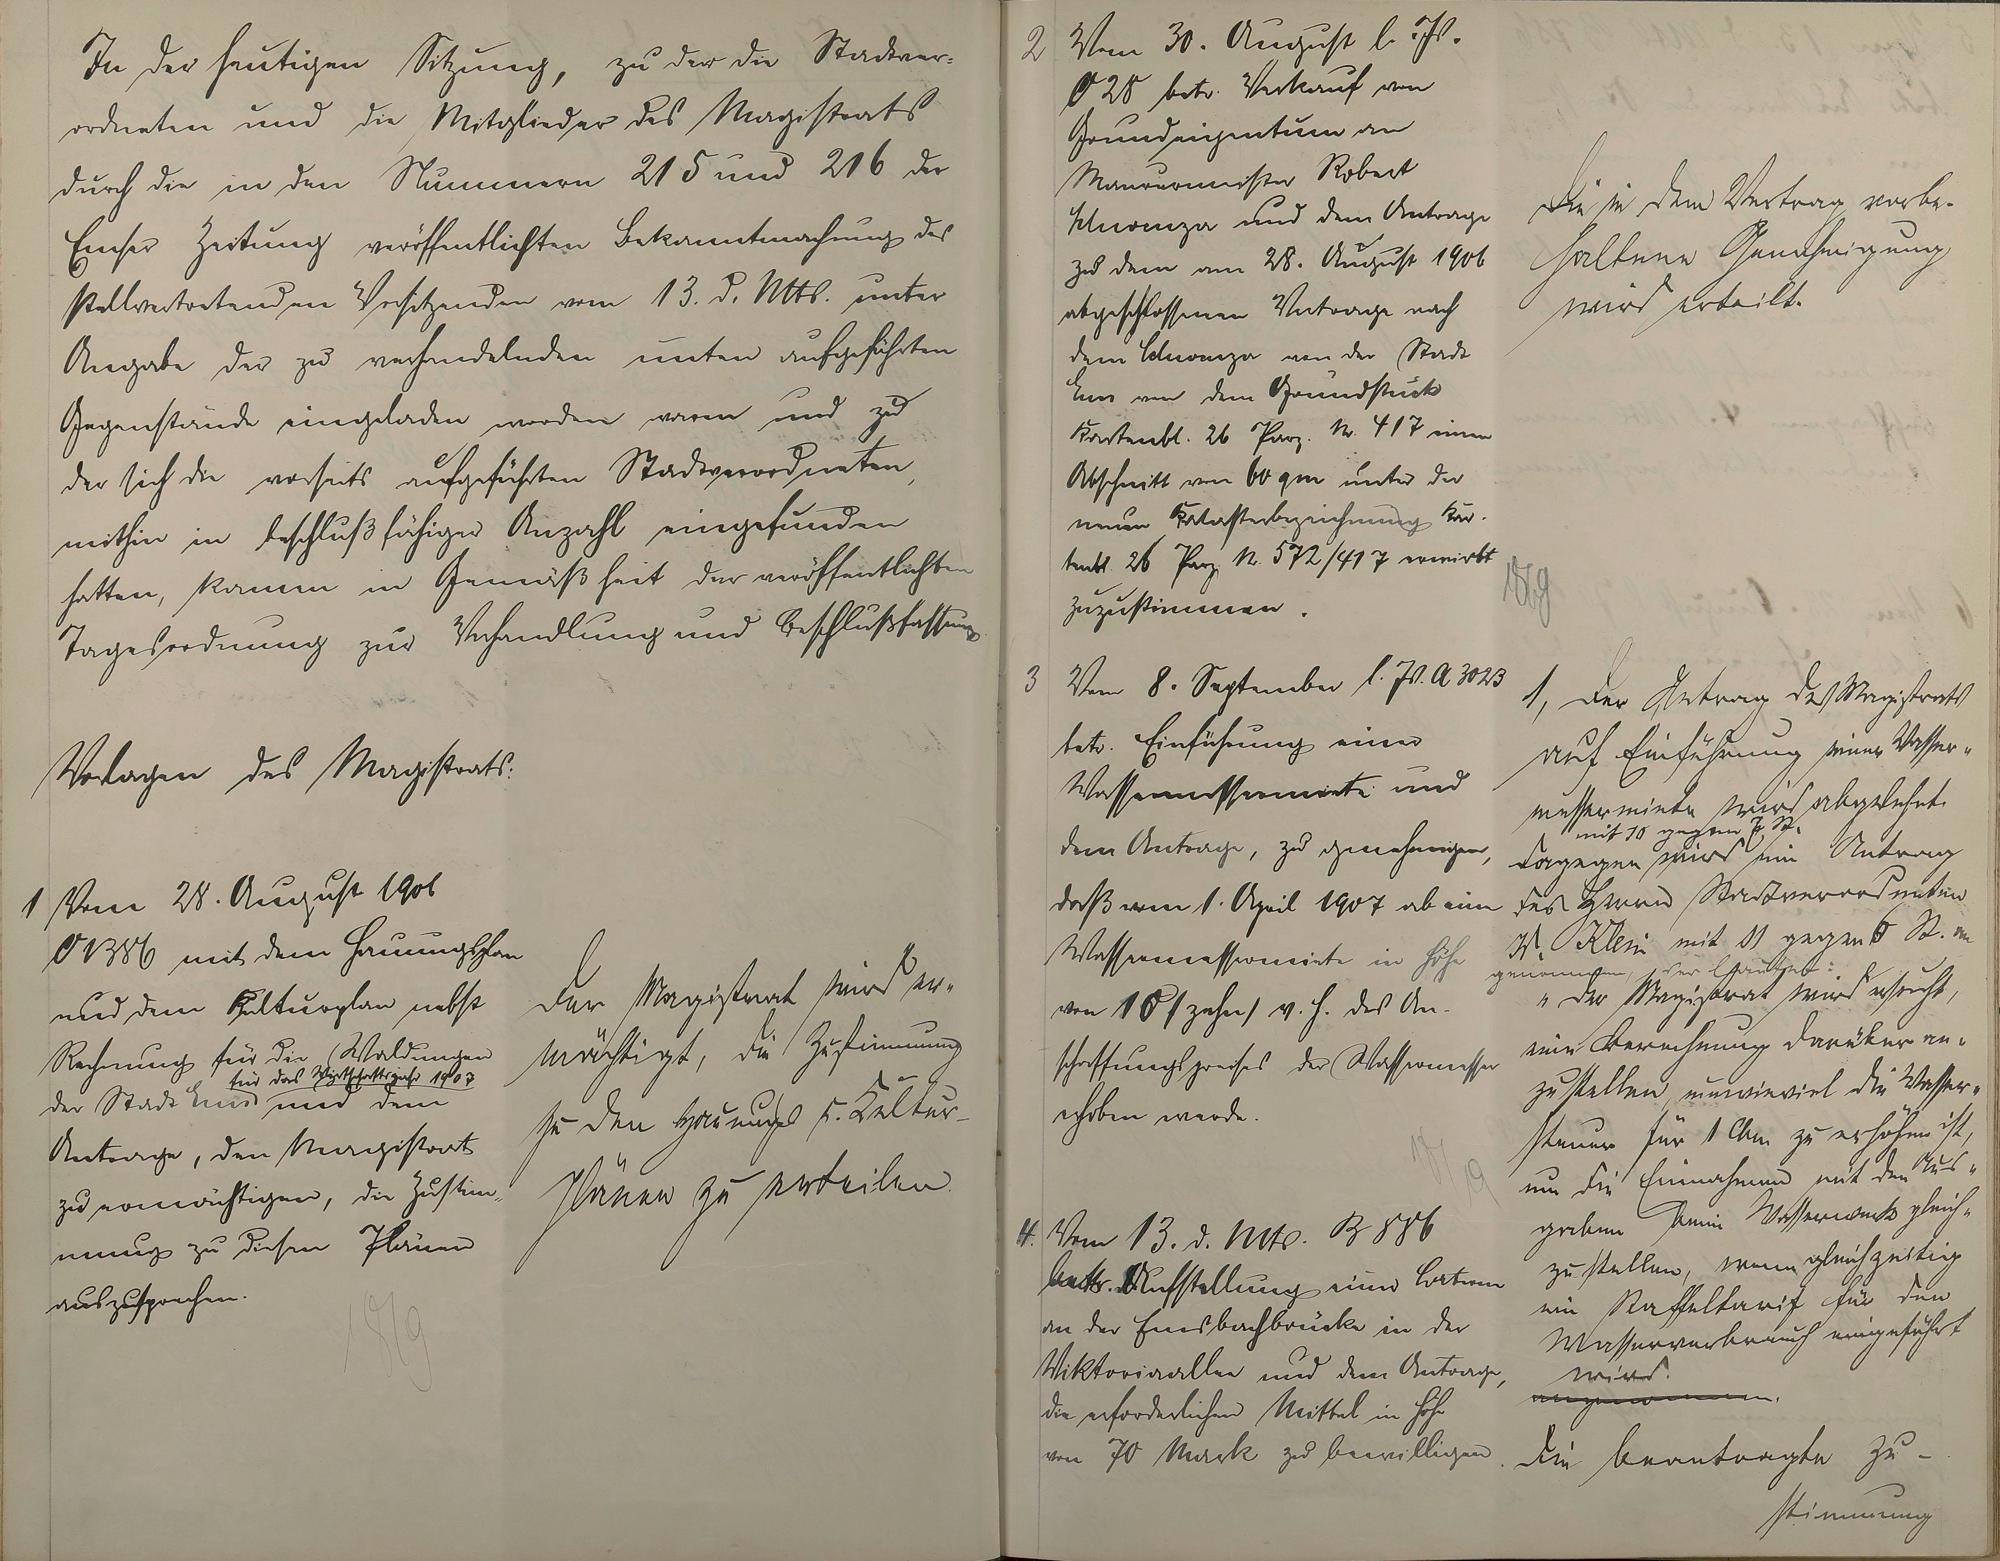 In der heutigen Sitzung, zu der die Stadtver-
ordneten und die Mitglieder des Magistrats
durch die in den Nummern 215 und 216 der
Emser Zeitung veröffentlichten Bekanntmachung des
stellvertretenden Vorsitzenden vom 13. d. Mts. unter
Angabe der zu verhandelnden unten aufgeführten
Gegenstände eingeladen worden waren und zu
der sich die vorseits aufgeführten Stadtverordneten,
mithin in beschlußfähiger Anzahl eingefunden
hatten, kamen in Gemäßheit der veröffentlichten
Tagesordnung zur Verhandlung und Beschlußfassung
Vorlagen des Magistrats:
1 Vom 28. August 1906
O 1386 mit dem Hauungsplan
und dem Kulturplan nebst
Rechnung für die Waldungen
für das Wirtschaftsjahr 1907
der Stadt Ems und dem
Antrage, den Magistrat
zu ermächtigen, die Zustim-
mung zu diesen Plänen
auszusprechen.
18/9
Der Magistrat wird er-
mächtigt, die Zustimmung
zu den Hauungs u. Kultur-
plänen zu erteilen.
2 Vom 30. August l. Js.
O 28 betr. Verkauf von
Grundeigentum an
Maurermeister Robert
und dem Antrage
zu dem am 28. August 1906
abgeschlossenen Vertrage nach
dem von der Stadt
Ems von dem Grundstück
Kartenbl. 26 Parz. Nr. 417 einen
Abschnitt von 60 qm unter der
neuen Katasterbezeichnung Kar-
tenbl. 26 Parz. Nr. 572/417 erwirbt
zuzustimmen.
Die in dem Vertrag vorbe-
haltene Genehmigung
wird erteilt.
18/9
3 Vom 8. September l. Js. A 3023
betr. Einführung einer
Wassermessermiete und
dem Antrage, zu genehmigen,
daß vom 1. April 1907 ab eine
Wassermessermiete in Höhe
von 10 /zehn/ v. H. des An-
schaffungspreises der Wassermesser
erhoben werde.
18/9
1, Der Antrag des Magistrats
auf Einführung einer Wasser-
messermiete wird abgelehnt
mit 10 gegen 7 St.
Dagegen wird ein Antrag
des Herrn Stadtverordneten
W. Klein mit 11 gegen 6 St. an
genommen, der lautet:
"Der Magistrat wird ersucht,
eine Berechnung darüber an-
zustellen, um wieviel die Wasser-
steuer für 1 Cbm zu erhöhen ist,
um die Einnahmen mit den Aus-
gaben beim Wasserwerk gleich-
zustellen, wenn gleichzeitig
ein Staffeltarif für den
Wasserverbrauch eingeführt
wird.
angenommen.
4. Vom 13. d. Mts. B 886
betr. Aufstellung einer Laterne
an der Emsbachbrücke in der
Viktoriaallee und dem Antrage,
die erforderlichen Mittel in Höhe
von 70 Mark zu bewilligen.
Die beantragte Zu-
stimmung